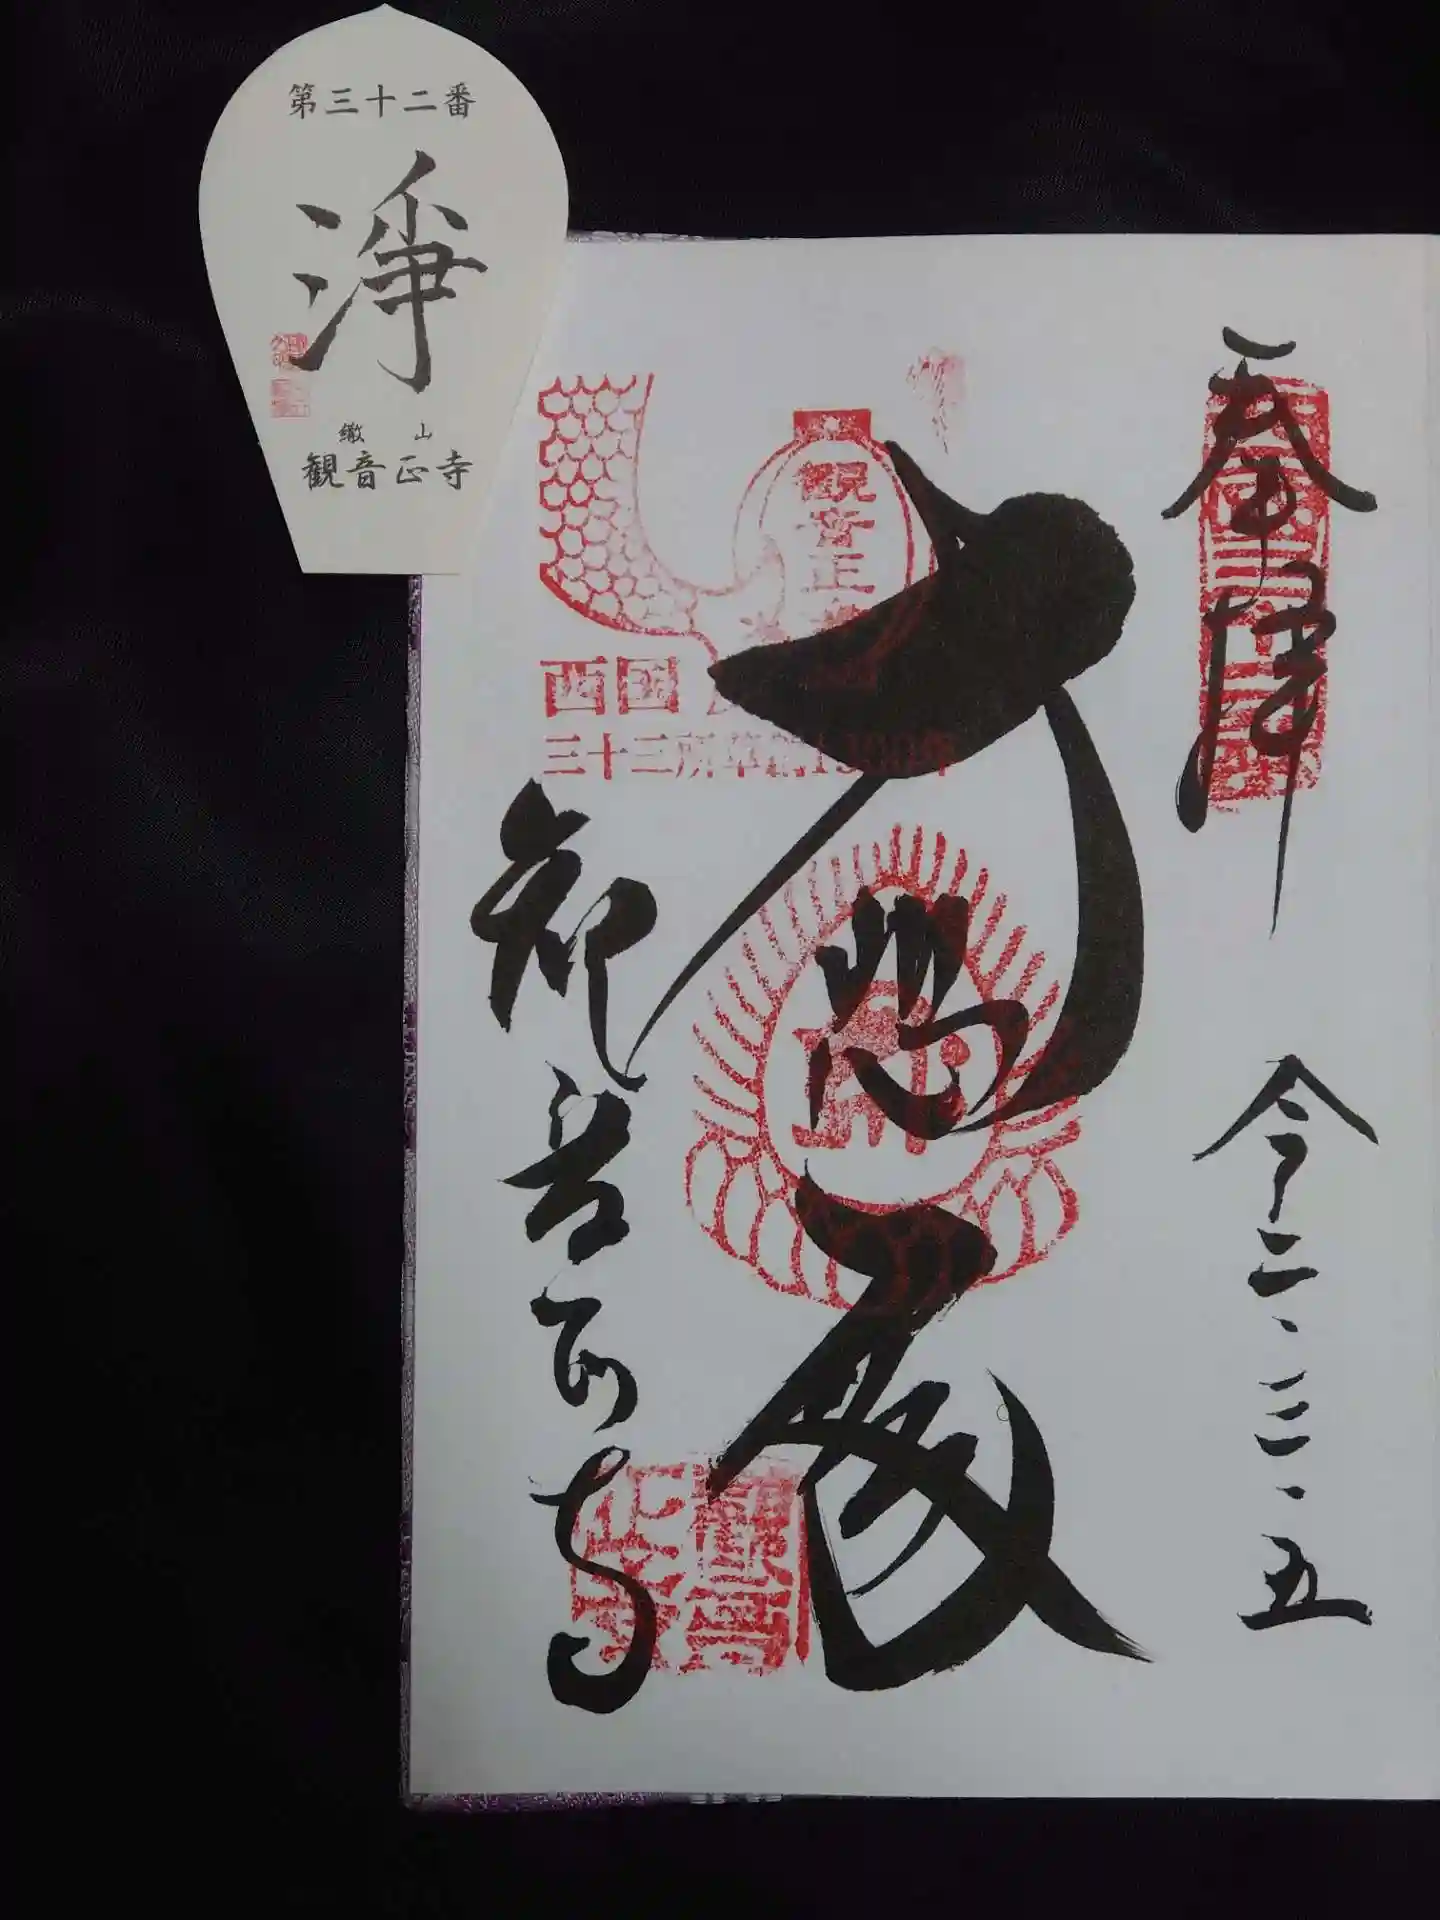 第三十二番
淨
繖山
観音正寺
奉拝
令二・三・五
大悲殿
観音正寺
観音正寺
西国
三十三所草創1300年